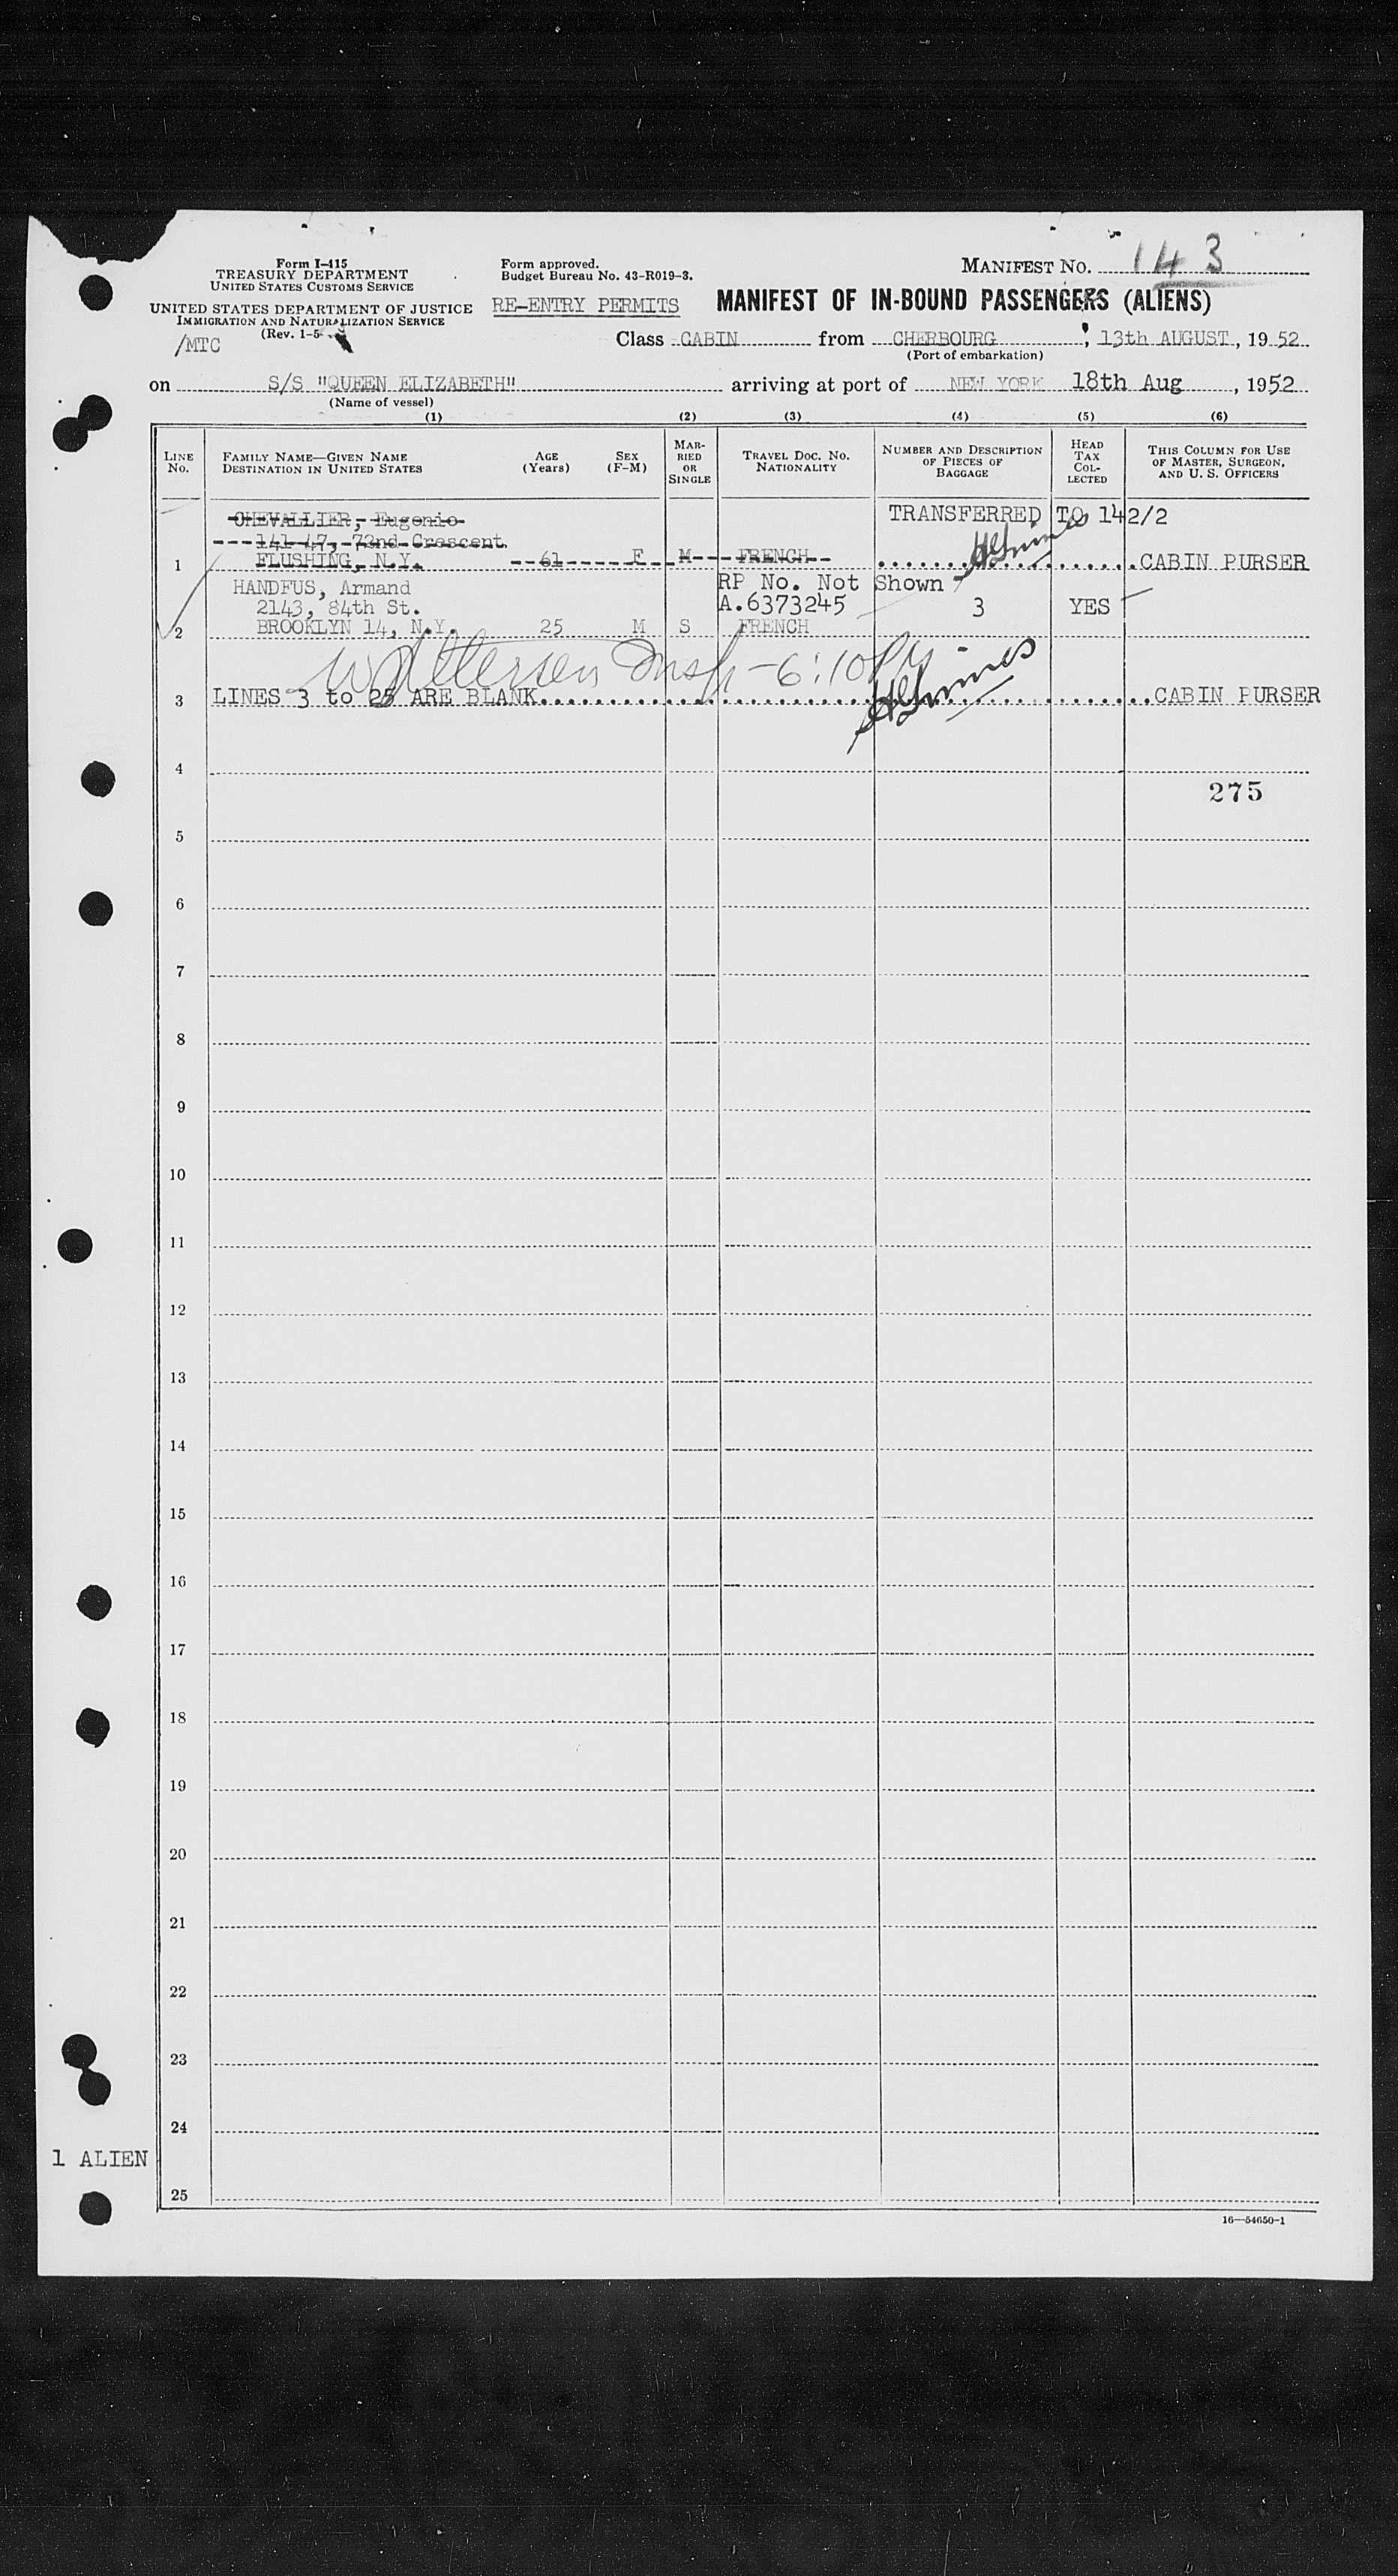 Form I-415
TREASURY DEPARTMENT
UNITED STATES CUSTOMS SERVICE
UNITED STATES DEPARTMENT OF JUSTICE
IMMIGRATION AND NATURALIZATION SERVICE
(Rev. 1-5
/MTC
Form approved.
Budget Bureau No. 43-R019-3.
RE-ENTRY PERMITS
MANIFEST NO. 143
MANIFEST OF IN-BOUND PASSENGERS (ALIENS)
Class CABIN from CHERBOURG, 13th AUGUST, 1952
(Port of embarkation)
on S/S "QUEEN ELIZABETH" arriving at port of NEW YORK 18th Aug, 1952
(Name of vessel)
(1) (2) (3) (4) (5) (6)
LINE No. FAMILY NAME—GIVEN NAME DESTINATION IN UNITED STATES AGE (Years) SEX (F-M) MARRIED OR SINGLE TRAVEL DOC. NO. NATIONALITY NUMBER AND DESCRIPTION OF PIECES OF BAGGAGE HEAD TAX COLLECTED THIS COLUMN FOR USE OF MASTER, SURGEON, AND U. S. OFFICERS
CHEVALLIER, Eugenio TRANSFERRED TO 142/2
141-47, 72nd Crescent
1 FLUSHING, N.Y. 61 F M FRENCH CABIN PURSER
HANDFUS, Armand RP No. Not Shown
2143, 84th St. A.6373245 3 YES
2 BROOKLYN 14, N.Y. 25 M S FRENCH
Insp - 6:10 PM
3 LINES 3 to 25 ARE BLANK CABIN PURSER
4
275
5
6
7
8
9
10
11
12
13
14
15
16
17
18
19
20
21
22
23
24
1 ALIEN
25
16—54650-1